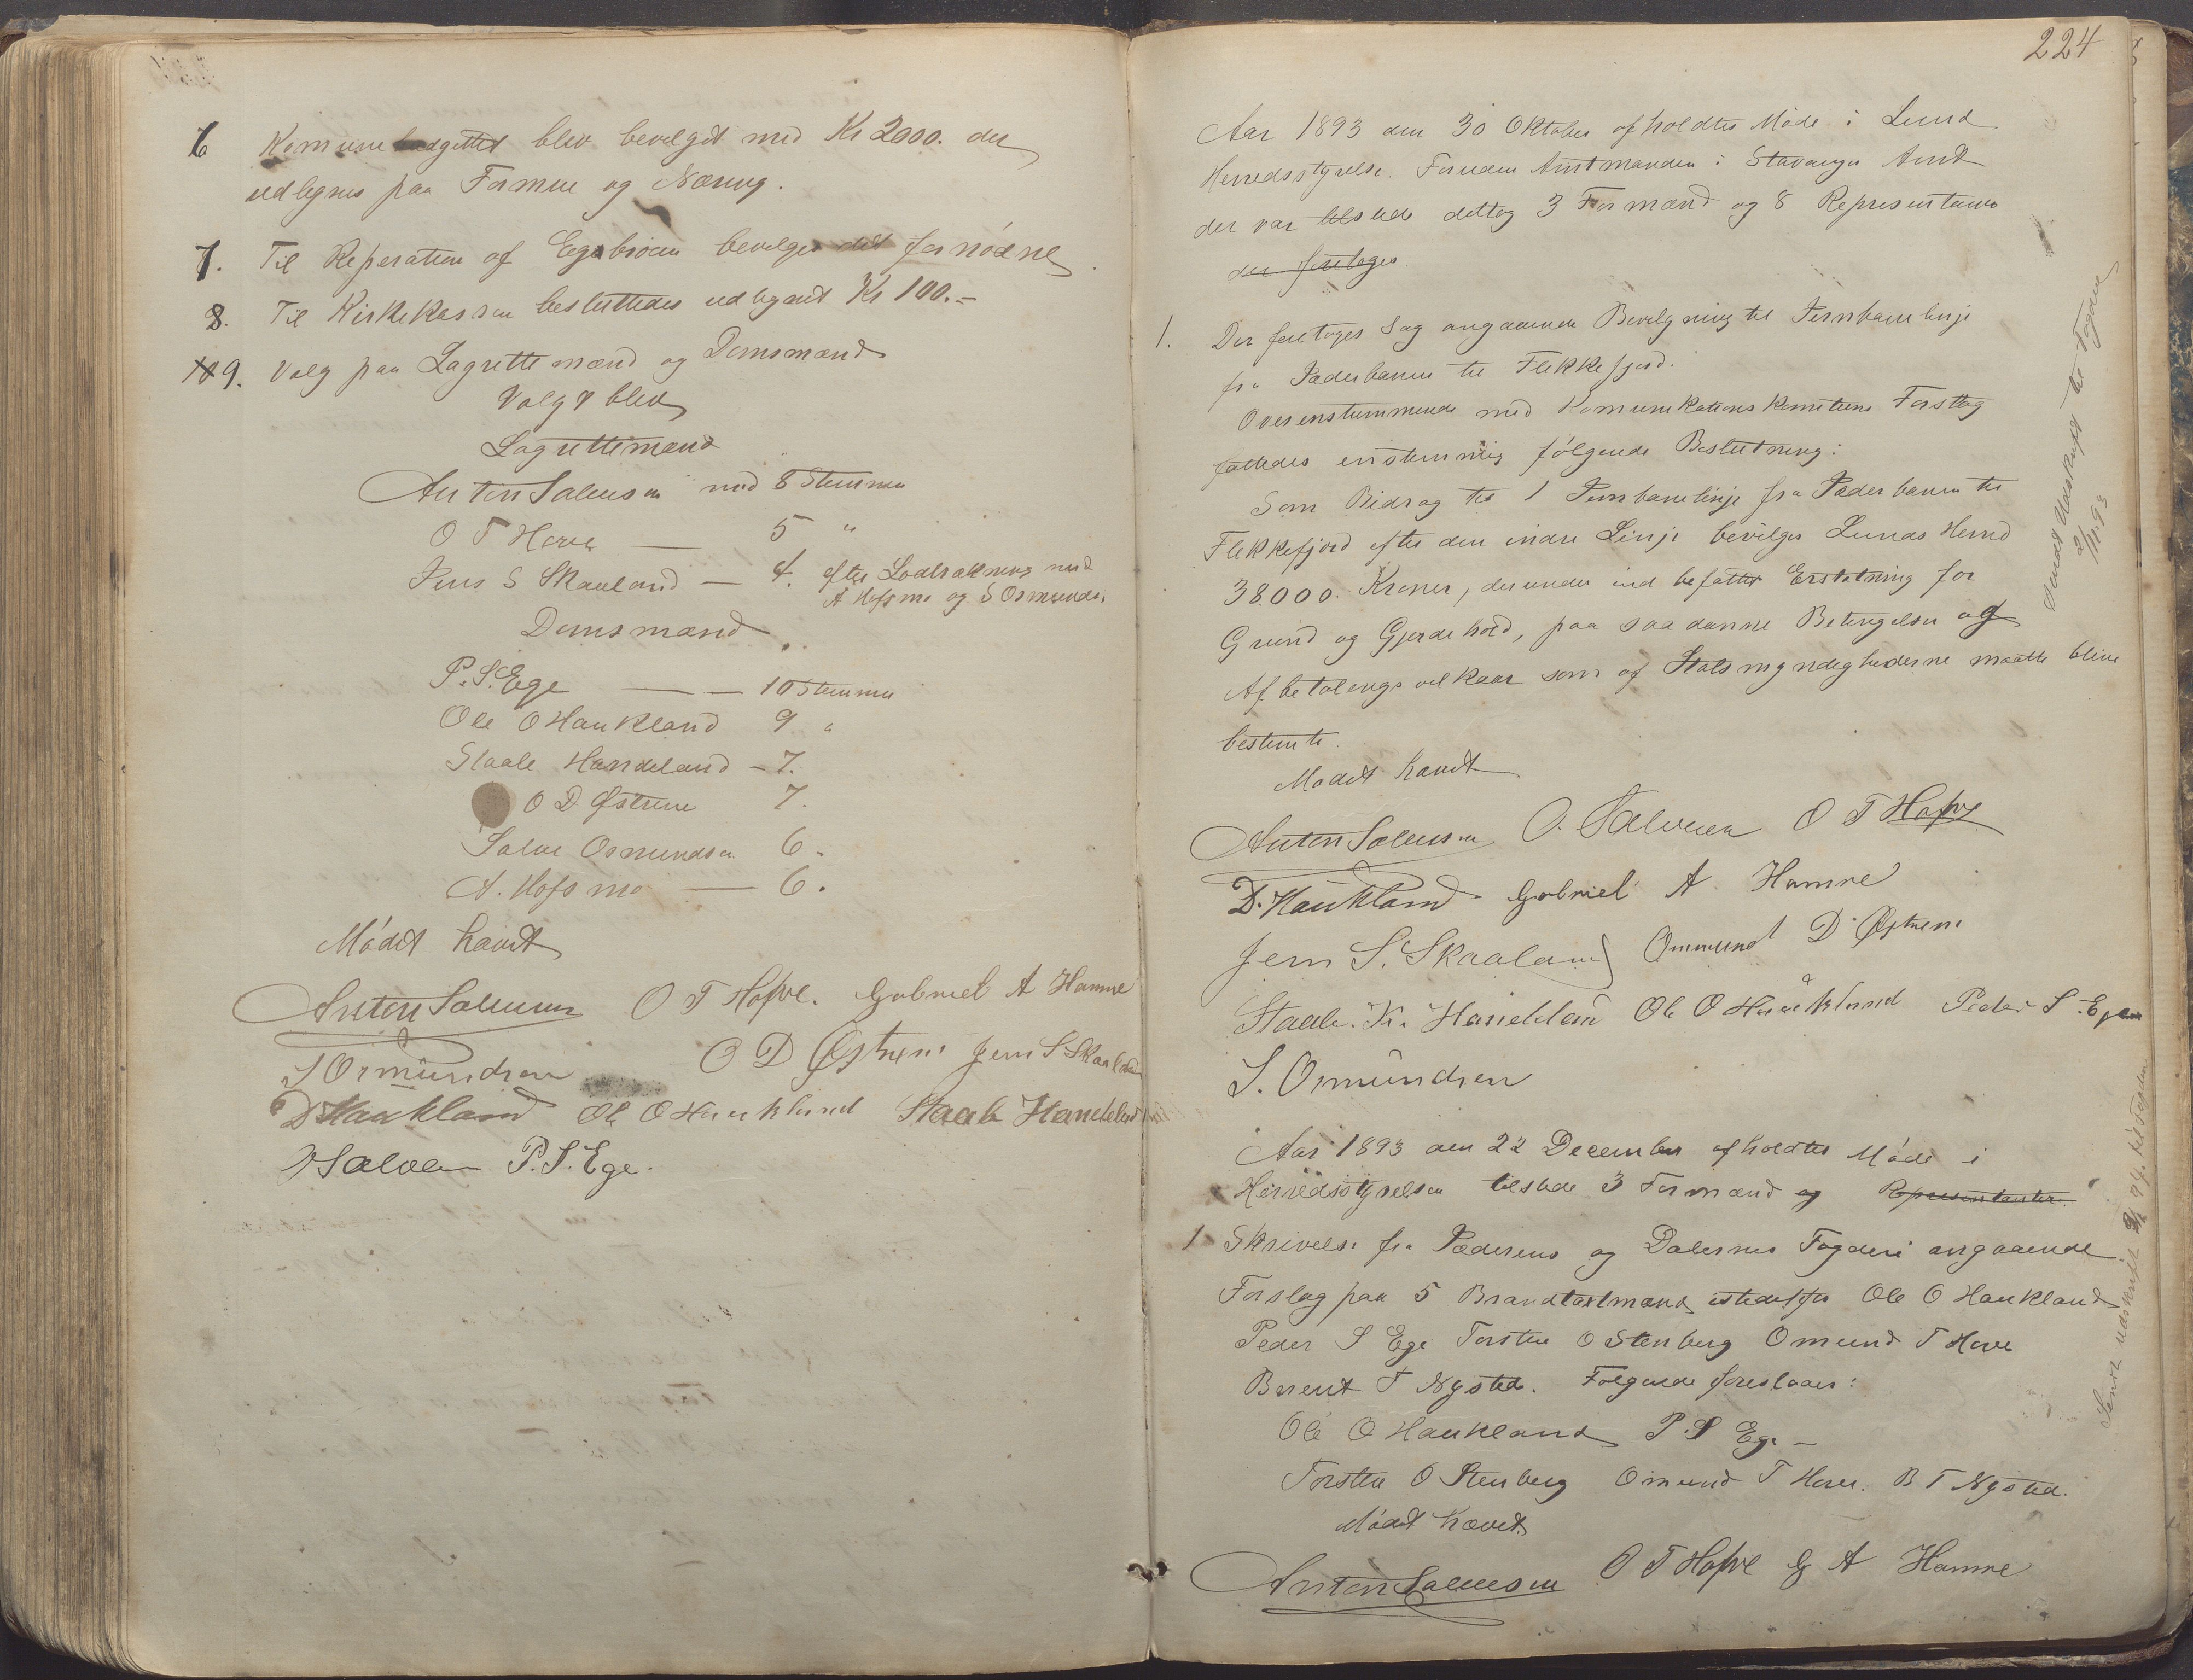 6 Komunebudgettet blev bevelget med Kr 2000. der
udlegnes paa Formue og Næring.
7. Til Reperation af Egebroen bevelges det fornødne.
8. Til Kirkekassen besluttedes udlegnet Kr 100.-
9. Valg paa Lagrettemænd og Domsmænd
Valgt blev
Lagrettemænd
Anton Salvesen med 8 Stemmer
O T Hove — 5 "
Jens S Skaaland — 4. efter Lodtrækning med
A Hofsmo og S Osmundse.
Domsmænd
P. S. Ege — — 10 Stemmer
Ole O Haukland 9 "
Staale Handeland - 7.
O D Østrem 7.
Salve Osmundsen 6.
A. Hofsmo — 6.
Mødet hævet
Anton Salvesen O T Hofve. Gabriel A Hamre
S Osmundsen O D Østrem Jens S Skaaland
D Haukland Ole O Haukland Staale Handeland
O Salvesen P. S. Ege.
224
Aar 1893 den 30 Oktober afholdtes Møde i Lund
Herredsstyrelse. Foruden Amtmanden i Stavanger Amt
der var tilstede deltog 3 Formænd og 8 Representanter
der foretoges
1. Der foretoges Sag angaaende Bevilgning til Jernbanelinje
fra Jæderbanen til Flekkefjord.
Overenstemmende med Komunekationskomiteens Forslag
fattedes enstemmig følgende Beslutning:
Som Bidrag til 1 Jernbanelinje fra Jæderbanen til
Flekkefjord efter den indre Linje bevilges Lunds Herred
38000. Kroner, derunder indbefattet Erstatning for
Grund og Gjerdehold, paa saadanne Betingelser og
Afbetalingsvilkaar som af Statsmyndighederne maatte blive
bestemte.
Mødet hævet
Anton Salvesen O. Salvesen O T Hofve
D. Haukland Gabriel A. Hamre
Jens S. Skaaland Ommund D Østrem
Staale. K. Handeland Ole O Haukland Peder S. Ege
S. Osmundsen
Sendt Udskrift til Fogden
2/11 93
Aar 1893 den 22 December afholdtes Møde i
Herredsstyrelsen tilstede 3 Formænd og Representanter.
1 Skrivelse fra Jæderens og Dalernes Fogderi angaaende
Forslag paa 5 Brandtaxtmænd istedetfor Ole O Haukland
Peder S Ege Torsten O Stenberg Omund T Hove
Berent T Nysted. Følgende foreslaaes:
Ole O Haukland P. S Ege -
Torsten O Stenberg Omund T Hove. B T Nysted.
Mødet hævet
Anton Salvesen O T Hofve G A Hamre
Sendt udskrift 94. til Fogden